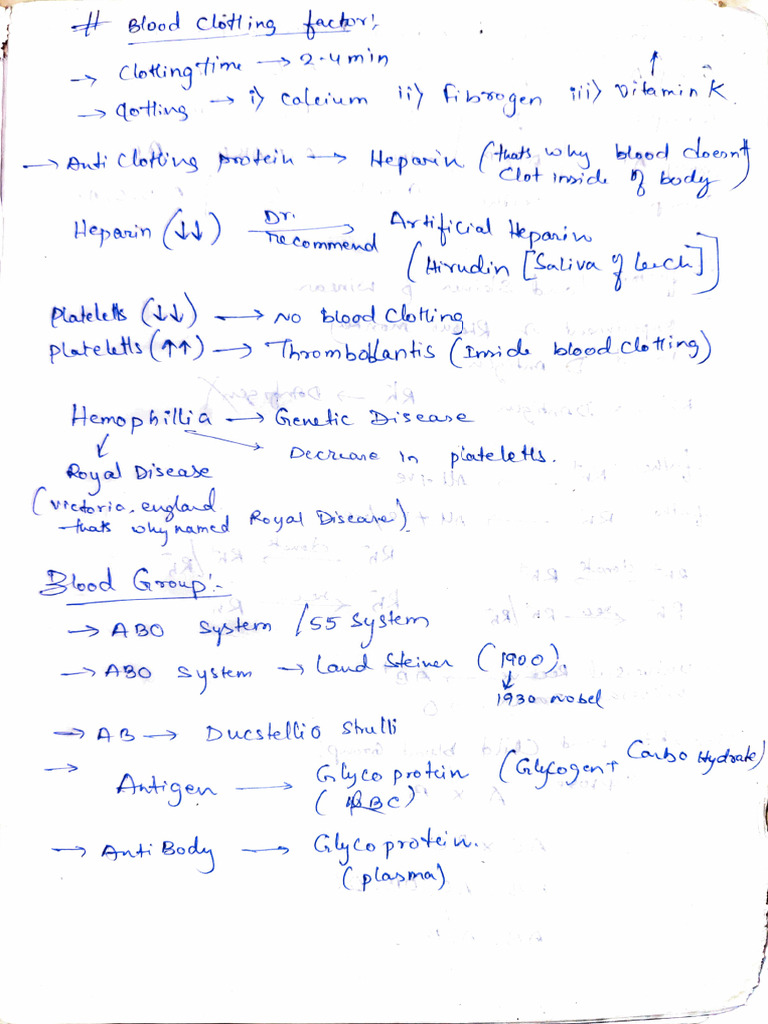 # Blood Clotting factor:
→ Clotting time → 2-4 min
→ Clotting → i) Calcium ii) Fibrogen iii) Vitamin K ↑
→ Anti Clotting protein → Heparin (thats why blood doesn't
Clot inside of body)
Heparin (↓↓) Dr. recommend → Artificial Heparin
(Hirudin [Saliva of leech])
Platelets (↓↓) → No Blood Clotting
Plateletls (↑↑) → (Inside blood clotting)
Hemophillia → Genetic Disease
→ Decrease in plateletls.
Royal Disease
(Victoria, england
thats why named Royal Disease)
Blood Group:-
→ ABO System / 55 System
→ ABO System → Land Steiner (1900).
1930 nobel
→ AB → Ducstellio Strulli
→ Antigen → Glyco protein (Glycogen + Carbo Hydrate)
(RBC)
→ AntiBody → Glycoprotein.
(plasma)